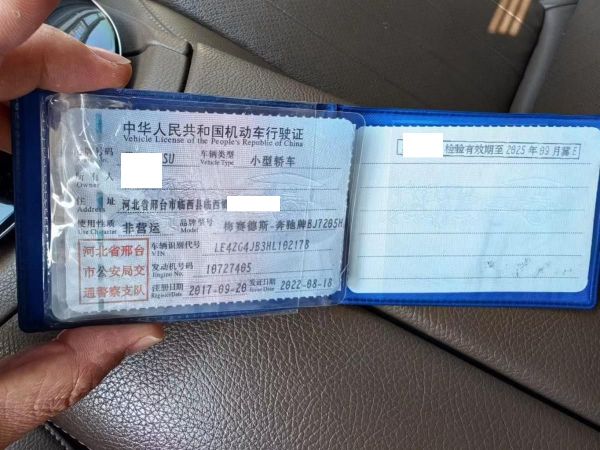 中华人民共和国机动车行驶证
Vehicle License of the People's Republic of China
号码 SU 车辆类型 小型轿车
Vehicle Type
所有人
Owner
住址 河北省邢台市临西县临西
Address
使用性质 非营运 品牌型号 梅赛德斯-奔驰牌BJ7205H
Use Character Model
河北省邢台
市公安局交
通警察支队
车辆识别代号 LE4ZG4JB3HL102178
VIN
发动机号码 10727405
Engine No.
注册日期 2017-09-20 发证日期 2022-08-18
Register Date Issue Date
检验有效期至 2025年09月